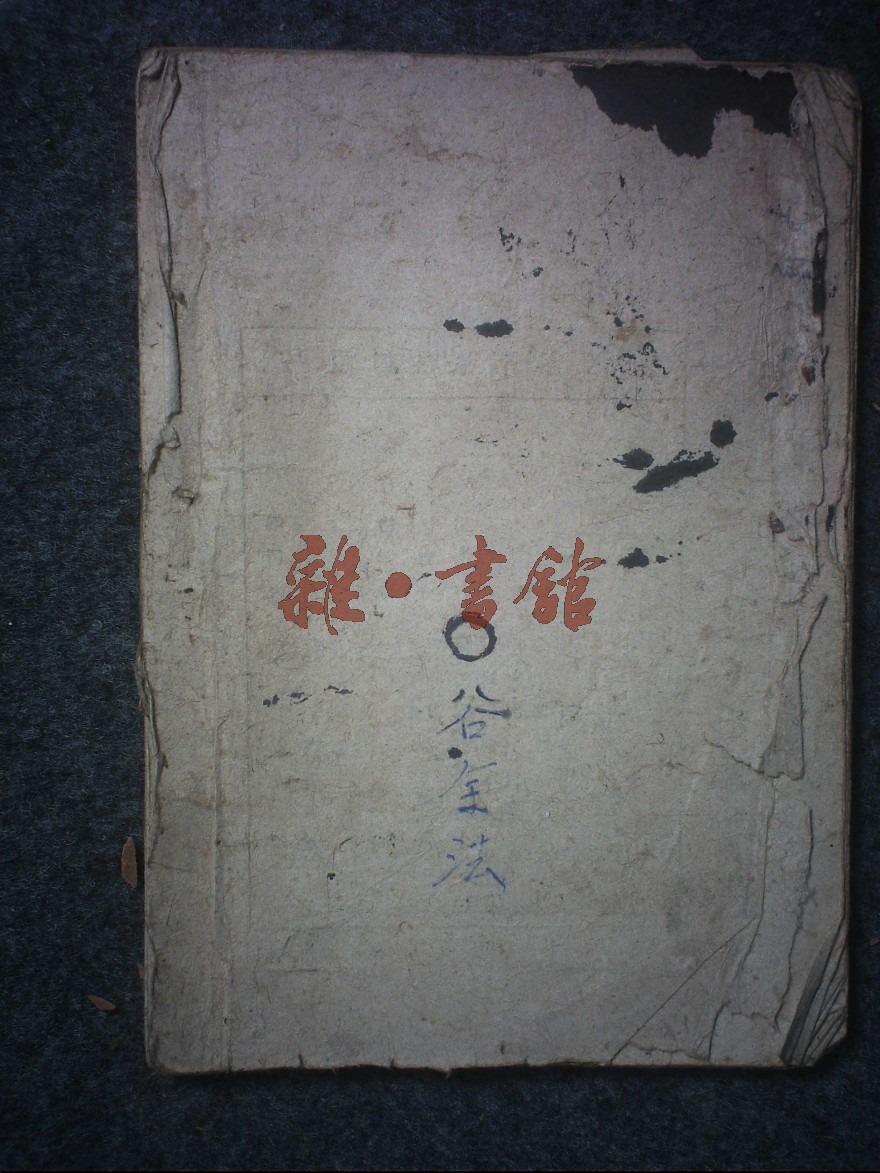 雜·書館
谷金法